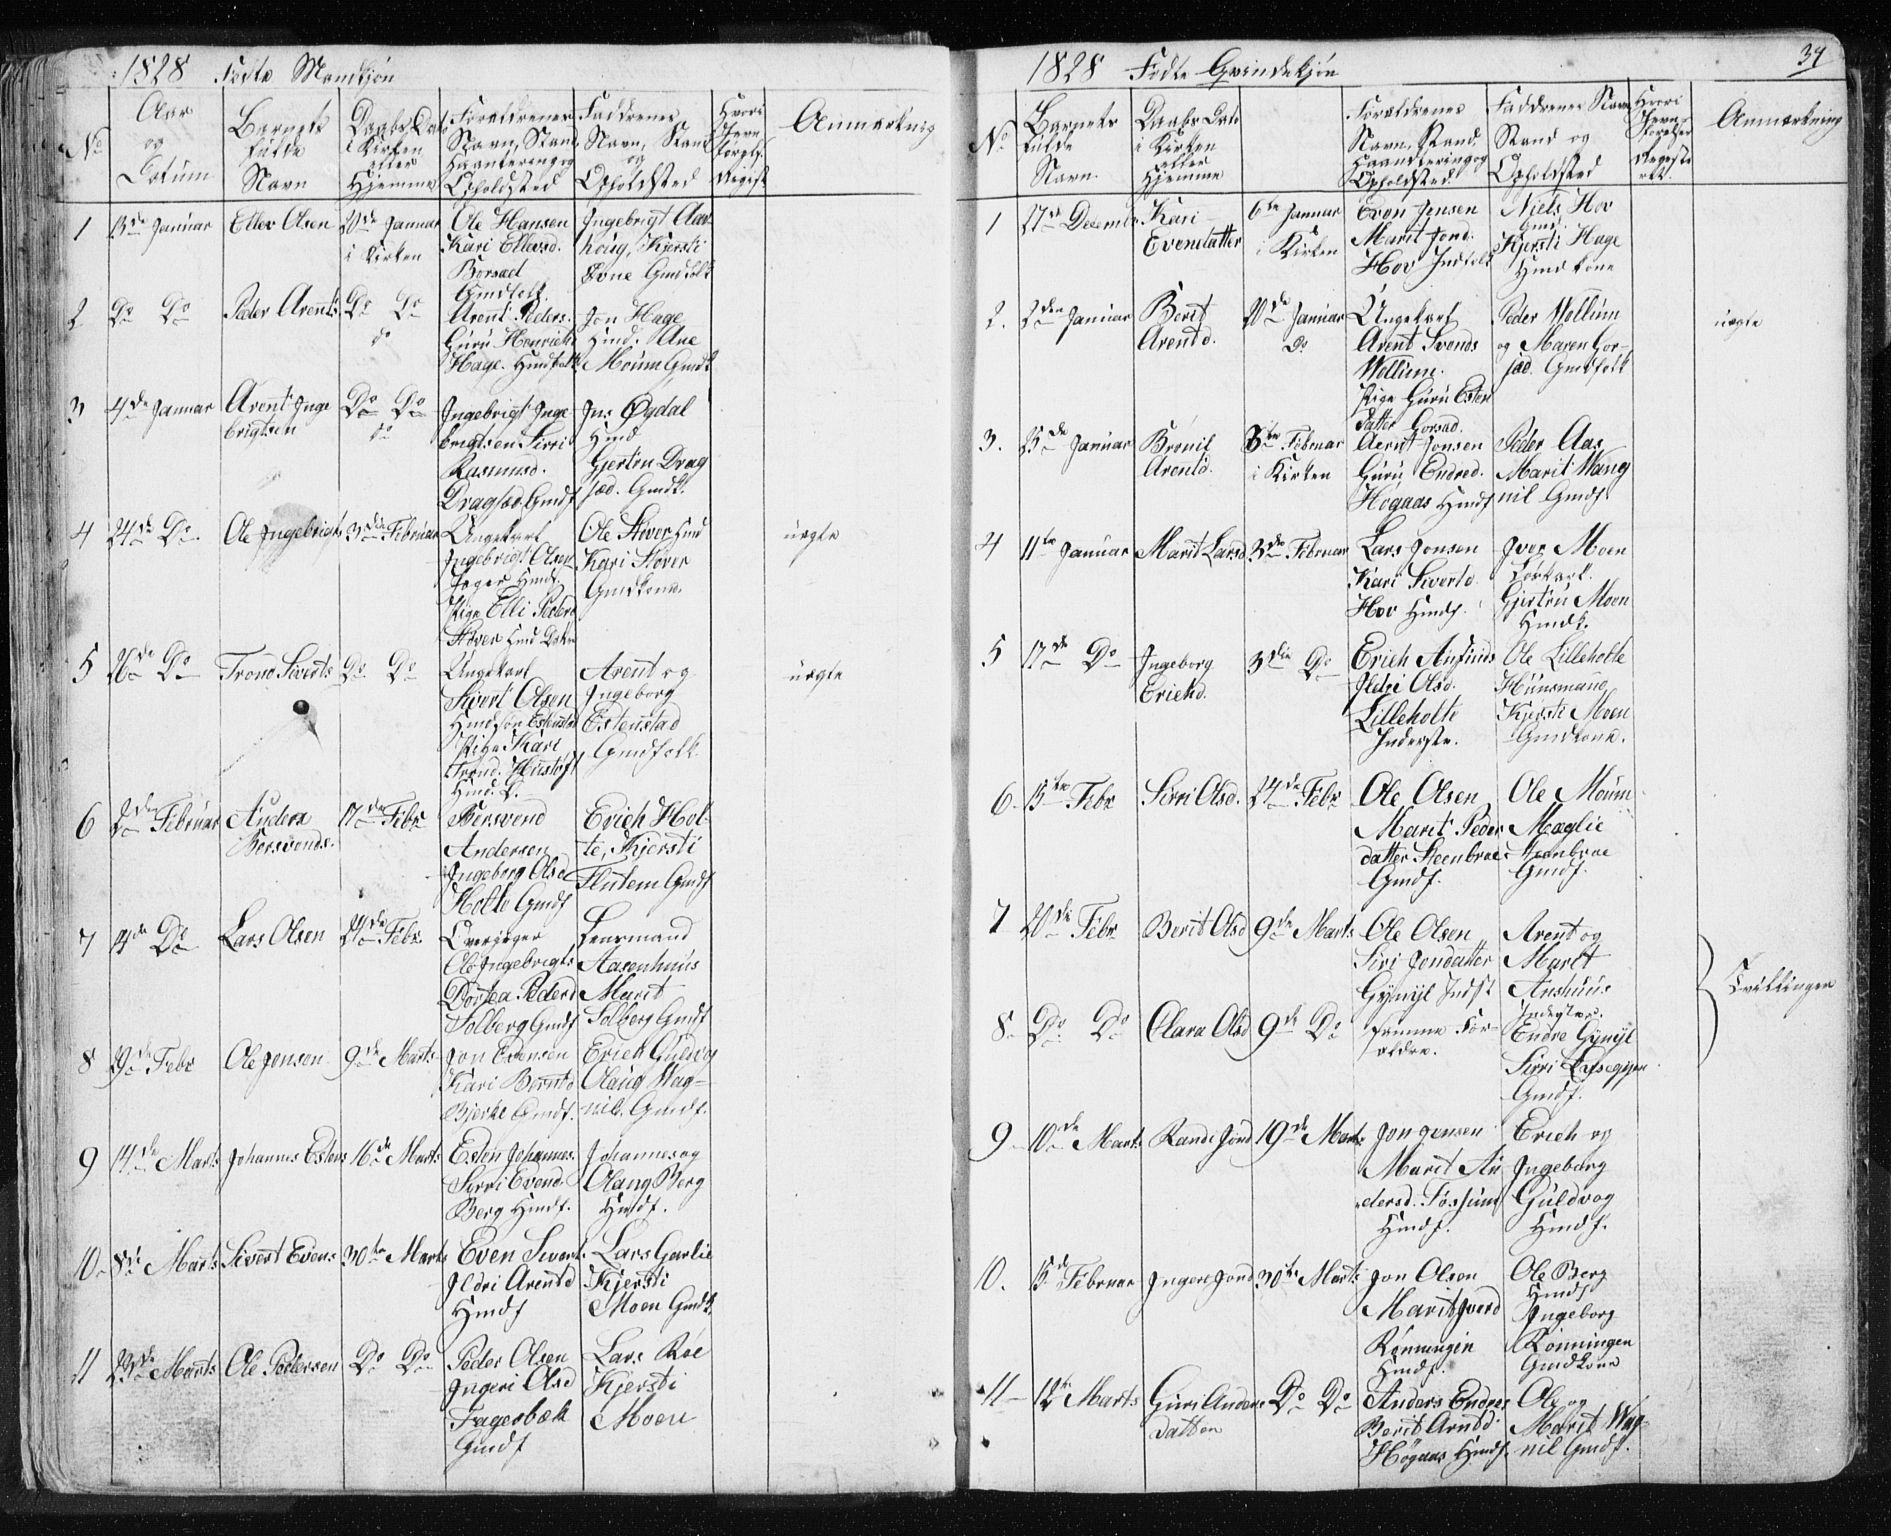 1828 Födte Mandkjön
No
Aar
og
Datum
Barnets
fulde
Navn
Daabs Dato
i Kirken
eller
Hjemme
Forældrenes
Navn, Stand
Haantering og
Opholdsted
Faddrenes
Navn, Stand
og
Opholdsted
Anmærkning
1 13de Januar Eller Olsen 20de Januar
i Kirken
Ole Hansen
Kari Ellersd.
Borsæd
Gmdfolk
Ingebrigt Aas
houg, Kjersti
Gmdfolk
2 Do Do Peder Arents. Do Do
do
Arent Peders.
Guru Henrichs
Hage. Hmdfolk
Jon Hage
Hmd. Ane
Moum Gmdk
3 4de Januar Arent Inge
brigtsen
Do Do
do
Ingebrigt Inge
brigtsen Sirri
Rasmusd.
Dragsæd Gmdf
Jns Øgdal
Hmd
Gjertru Drag
sæd. Gmdk.
4 24de Do Ole Ingebrigts 3die Februar
Ungekarl
Ingebrigt Olsen
Jæger Hmds.
Pige Elli Peders
Støver Hmd Datter
Ole Støver Hmd
Kari Støver
Gmdkone.
uægte
5 26de Do Trond Siverts Do Do
Ungekarl
Sivert Olsen
Hmdsön Estenstad
Pige Kari
Trond. Hustoft
Hmd. D.
Arent og
Ingeborg
Estenstad
Gmdfolk
uægte
6 2den Februar Anders
Bersvends.
17de Febr
Bersvend
Andersen
Ingeborg Olsd
Holte Gmdf
Erich Hol-
te, Kjersti
Flutem Gmdf
7 4de Do Lars Olsen 24de Febr.
Overjæger
Ole Ingebrigts
Dorthea Pedersd
Solberg Gmdf
Lensmand
Aasenhuus
Marit
Solberg Gmdf
8 9de Febr Ole Jonsen 9de Marts
Jon Evensen
Kari Berntd
Bjerke Gmdf.
Erich Guldvog
Olaug Wag-
nil. Gmdf.
9 14de Marts Johannes Estens 16de Marts
Esten Johannes.
Sirri Evend.
Berg Hmdf.
Johannes og
Olaug Berg
Hmdf.
10 8de Marts Sivert Evens 30te Marts
Even Sivert.
Ildri Arentd
Hmdf
Lars Garlie
Kjersti
Moen Gmdk
11 23de Marts Ole Pedersen Do Do
Peder Olsen
Ingeri Olsd
Fagerbæk
Gmdf
Lars Röe
Kjersti
Moen
1828 Födte Qvindekjön
34
No
Barnets
fulde
Navn.
Daabs Dato
i Kirken
eller
Hjemme
Forældrenes
Navn, Stand.
Haandtering og
Opholdsted
Faddrenes Navn
Stand og
Opholdsted
Anmærkning
1 27de Decembr Kari
Evensdatter
6te Januar
i Kirken
Even Jensen
Marit Jons.
Hov Indfolk
Niels Hov
Gmd.
Kjersti Hage
Hmd kone
2. 2den Januar Berit
Arentd.
20de Januar
Do
Ungekarl
Arent Svends
Wollum.
Pige Guru Esten
datter Gorsæd.
Peder Wollum
og Maren Gor-
sæd. Gmdfolk
uægte
3. 15de Januar Brönil
Arentd.
3die Februar
i Kirken
Arent Jonsen
Guru Endred.
Högaas Hmdf
Peder Aas
Marit Wang
nil Gmdf.
4 11te Januar Marit Larsd 3die Februar
Lars Jonsen
Kari Sivertd.
Hov Hmdf.
Iver Moen
Gjertru Moen
Hmdk.
5 17de Do Ingeborg
Erichd.
3die Do
Erich Anfinds
Ildri Olsd.
Lilleholte
Inderste.
Ole Lilleholte
Huusmand
Kjersti Moen
Gmdkone.
6 15te Febr Sirri Olsd. 24de Febr
Ole Olsen
Marit Peder
datter Steenbroe
Gmdf.
Ole Moum
Maglie
Steenbroe
Gmdf.
7 20de Febr Berit Olsd 9de Marts
Ole Olsen
Siri Jonsdatter
Gynyl Indst
Arent og
Marit
Anshuus
Inderster.
Tvillinger
8. Do Do Clara Olsd 9de Do
samme For-
ældre.
Endre Gynyl
Sirri
Gmdf.
9 10de Marts Randi Jonsd 19de Marts
Jon Jensen
Marit An
dersd. Fossum
Hmdf.
Erich og
Ingeborg
Guldvog
Hmdf.
10. 15de Februar Ingeri Jonsd 30te Marts
Jon Olsen
Marit Iversd
Rönningen
Hmdf.
Ole Berg
Hmdf
Ingeborg
Rönningen
Gmdkone
11 12te Marts Guri Anders
datter
Do Do
Anders Endres
Berit Arntd
Högaas Hmdf.
Ole og
Marit Wag-
nil Gmdf.